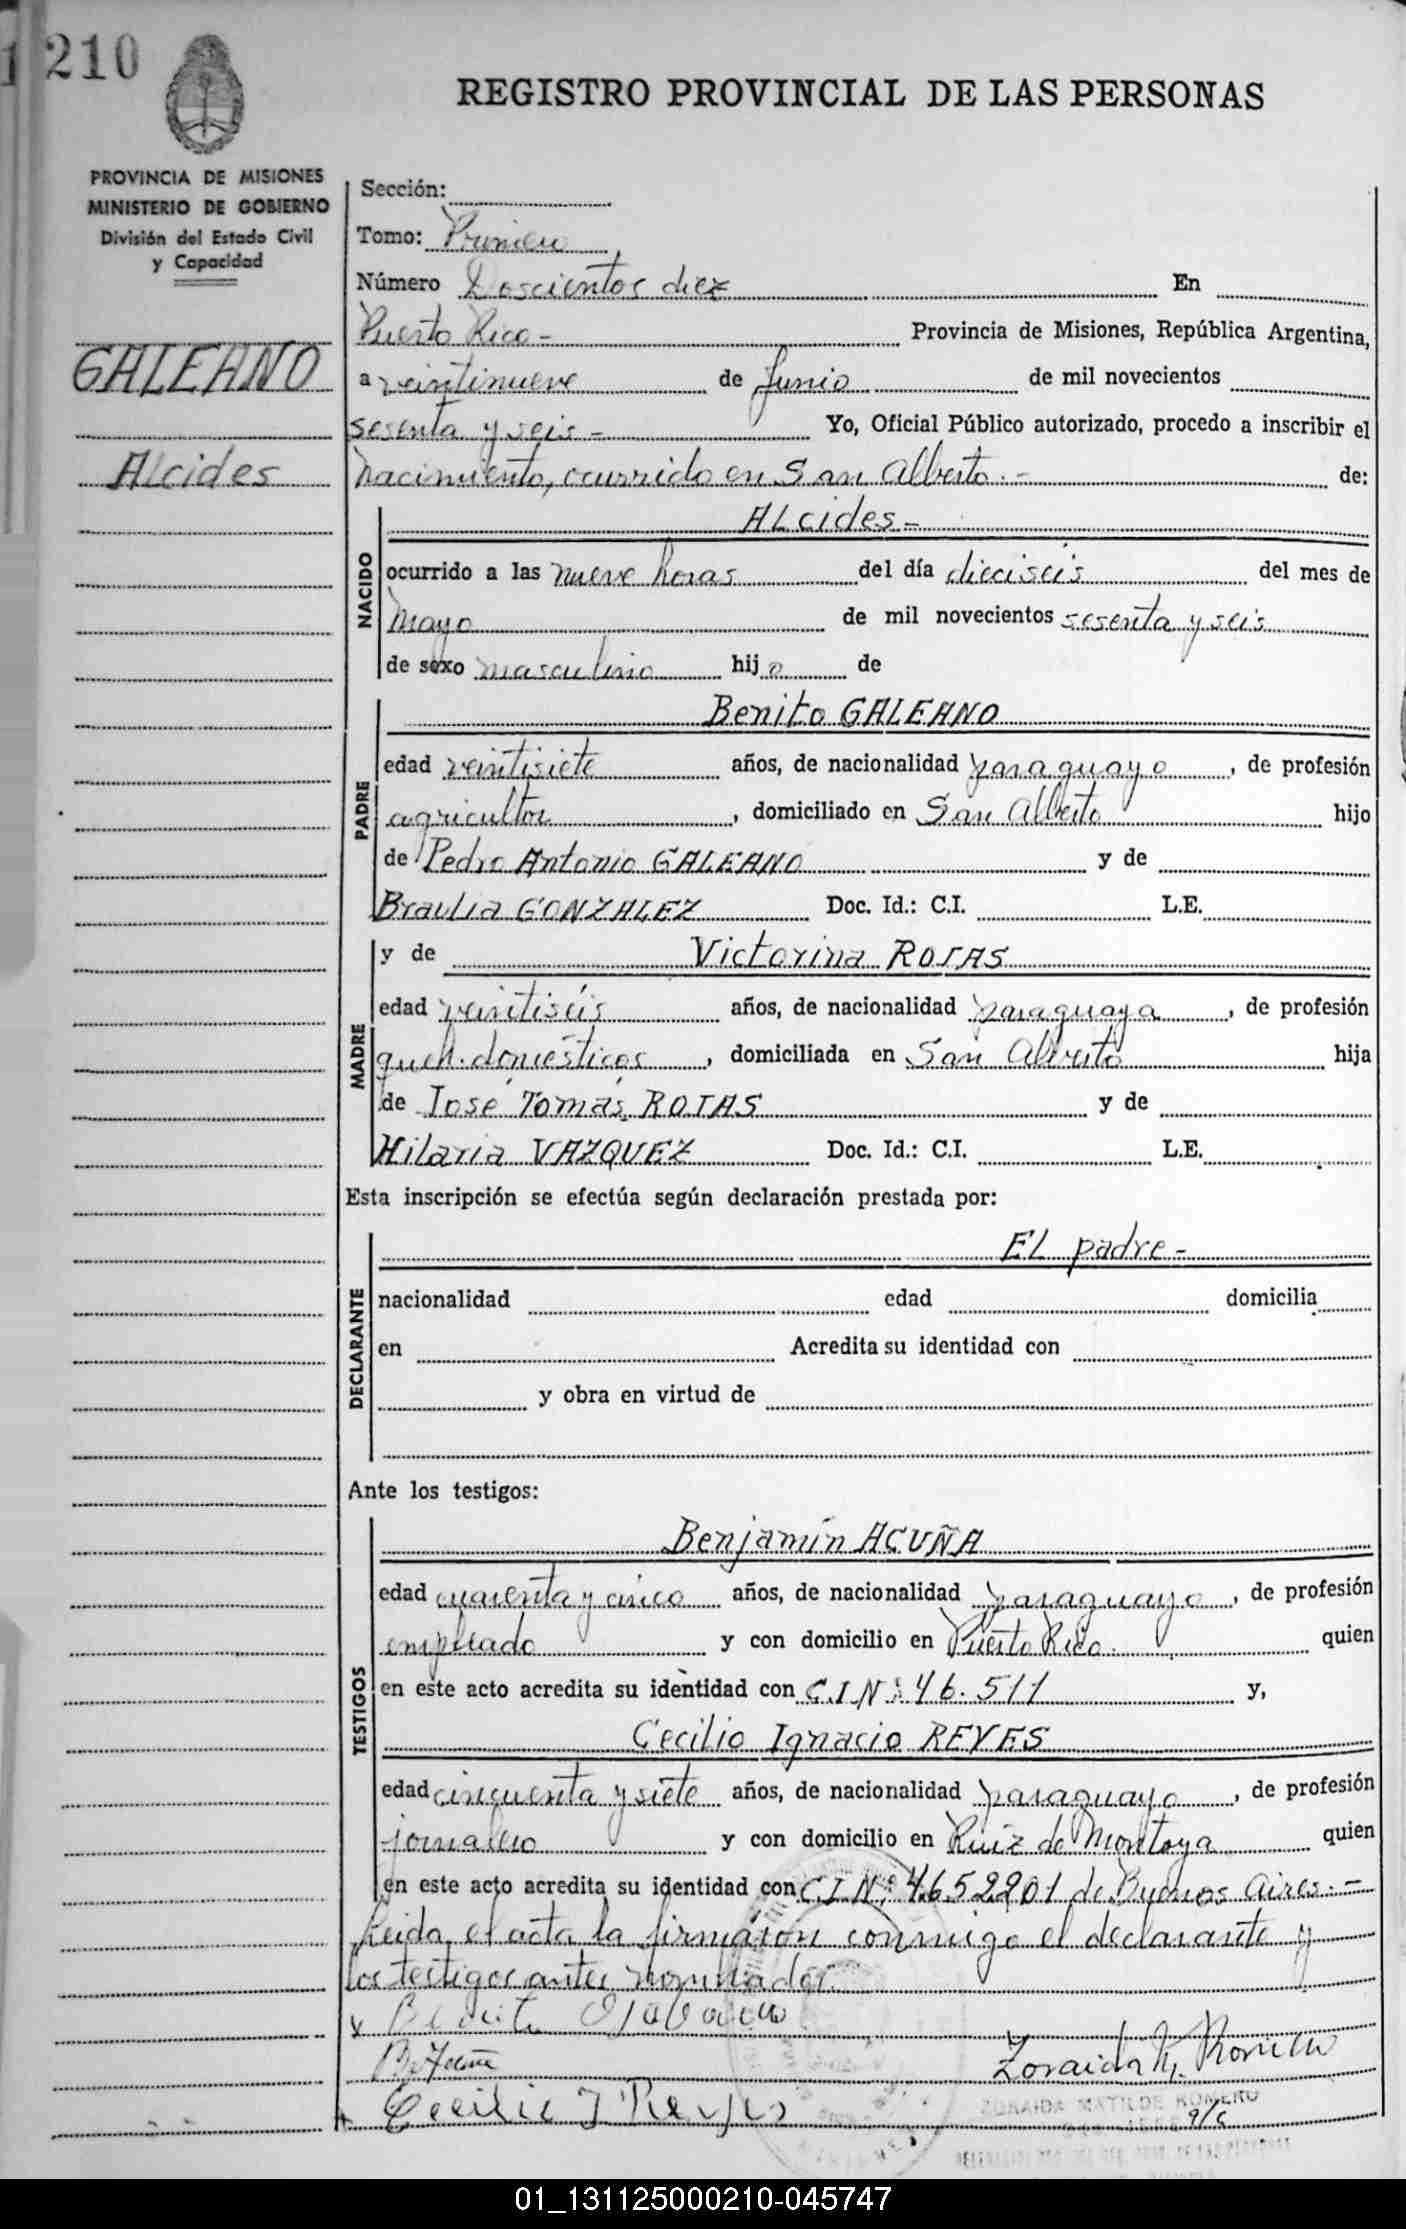 210
REGISTRO PROVINCIAL DE LAS PERSONAS
PROVINCIA DE MISIONES
MINISTERIO DE GOBIERNO
División del Estado Civil
y Capacidad
GALEANO
Alcides
Sección:
Tomo: Primero
Número Doscientos diez En
Puerto Rico - Provincia de Misiones, República Argentina,
a veintinueve de Junio de mil novecientos
sesenta y seis - Yo, Oficial Público autorizado, procedo a inscribir el
nacimiento, ocurrido en San Alberto. - de:
NACIDO
ALcides -
ocurrido a las nueve horas del día dieciséis del mes de
Mayo de mil novecientos sesenta y seis
de sexo masculino hijo de
PADRE
Benito GALEANO
edad veintisiete años, de nacionalidad paraguayo, de profesión
agricultor, domiciliado en San Alberto hijo
de Pedro Antonio GALEANO y de
Braulia GONZALEZ Doc. Id.: C.I. L.E.
MADRE
y de Victorina ROJAS
edad veintiséis años, de nacionalidad paraguaya, de profesión
queh. domésticos, domiciliada en San Alberto hija
de José Tomás ROJAS y de
Hilaria VAZQUEZ Doc. Id.: C.I. L.E.
Esta inscripción se efectúa según declaración prestada por:
DECLARANTE
EL padre -
nacionalidad edad domicilia
en Acredita su identidad con
y obra en virtud de
Ante los testigos:
TESTIGOS
Benjamín ACUÑA
edad cuarenta y cinco años, de nacionalidad paraguayo, de profesión
empleado y con domicilio en Puerto Rico. quien
en este acto acredita su identidad con C.I.Nº 46.511 y,
Cecilio Ignacio REYES
edad cincuenta y siete años, de nacionalidad paraguayo, de profesión
jornalero y con domicilio en Ruiz de Montoya quien
en este acto acredita su identidad con C.I.Nº 4.652.201 de Buenos Aires. -
Leida el acta la firmaron conmigo el declarante y
los testigos antes nombrados.
x Benito
B. Acuña
Zoraida M. Romero
x Cecilio I Reyes
ZORAIDA MATILDE ROMERO
a/c
01_131125000210-045747